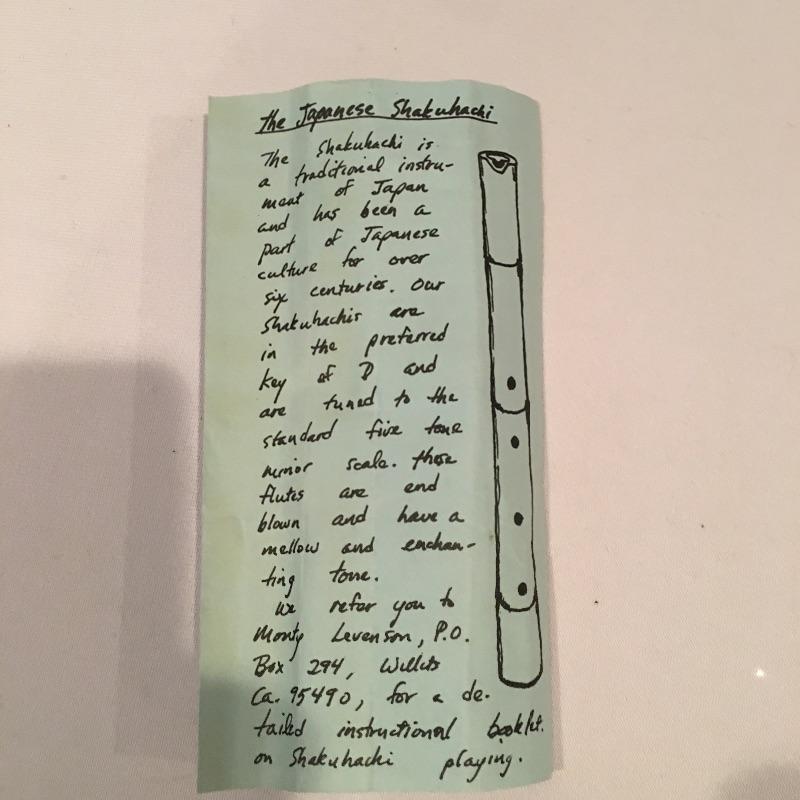 the Japanese Shakuhachi
The Shakuhachi is
a traditional instru-
ment of Japan
and has been a
part of Japanese
culture for over
six centuries. Our
Shakuhachis are
in the preferred
key of D and
are tuned to the
standard five tone
minor scale. these
flutes are end
blown and have a
mellow and enchan-
ting tone.
We refer you to
Monty Levenson, P.O.
Box 294, Willits
Ca. 95490, for a de-
tailed instructional booklet.
on Shakuhachi playing.